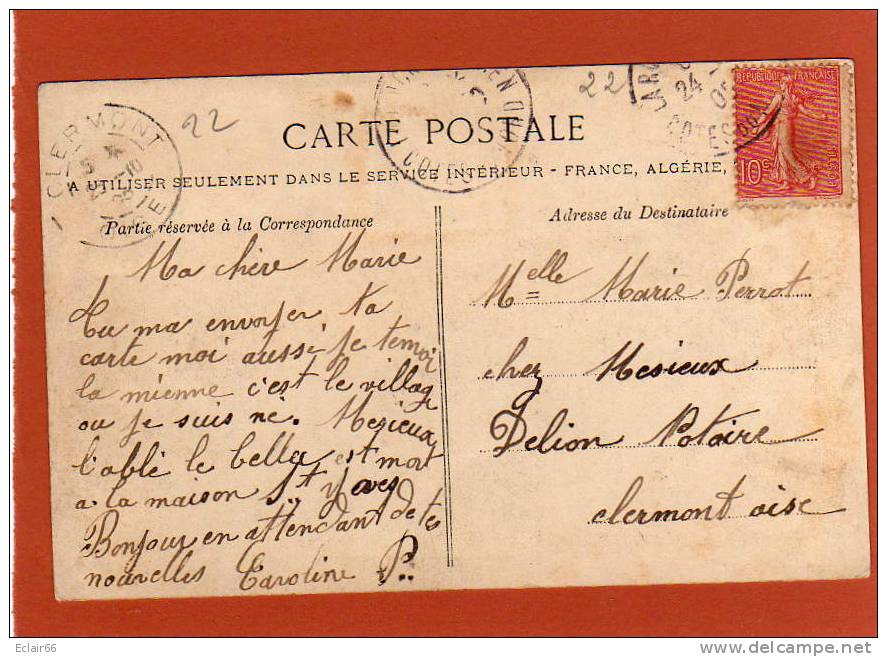 22
22
CLERMONT
OISE
24
COTES DU N
RÉPUBLIQUE FRANÇAISE
POSTES
10c
CARTE POSTALE
A UTILISER SEULEMENT DANS LE SERVICE INTÉRIEUR - FRANCE, ALGÉRIE,
Partie réservée à la Correspondance
Ma chère Marie
Tu ma envoyer ta
carte moi aussi je temoi
la mienne c'est le villag
ou je suis né. Mezieux
l'ablé le bella est mort
a la maison St. Yves
Bonjour en attendant de tes
nouvelles Caroline P..
Adresse du Destinataire
Melle Marie Perrot
chez Mesieux
Delion Notaire
clermont oise
Eclair66
www.delcampe.net